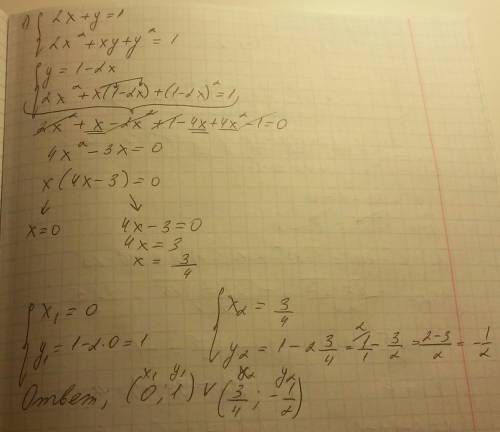 1) { 2x+y=1
2x²+xy+y²=1
{ y=1-2x
2x²+x(1-2x)+(1-2x)²=1,
2x²+x-2x²+1-4x+4x²-1=0
4x²-3x=0
x(4x-3)=0
↓ ↘
x=0 4x-3=0
4x=3
x=3/4
{ x₁=0 { x₂=3/4
y₁=1-2·0=1 y₂=1-2 3/4=1/1 ²-3/2=(2-3)/2=-1/2
x₁ y₁ x₂ y₂
Ответ; (0;1) ∨ (3/4; -1/2)